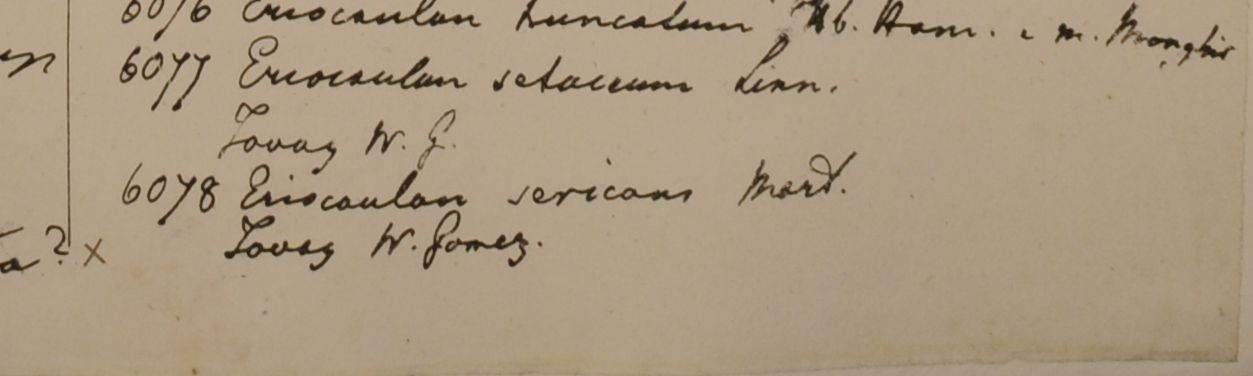 6076 Eriocaulon truncatum Hb. Ham. e m. Monghir
6077 Eriocaulon setaceum Linn.
Tavoy W. G.
6078 Eriocaulon sericans Mart.
Tavoy W. Gomez.
a? x